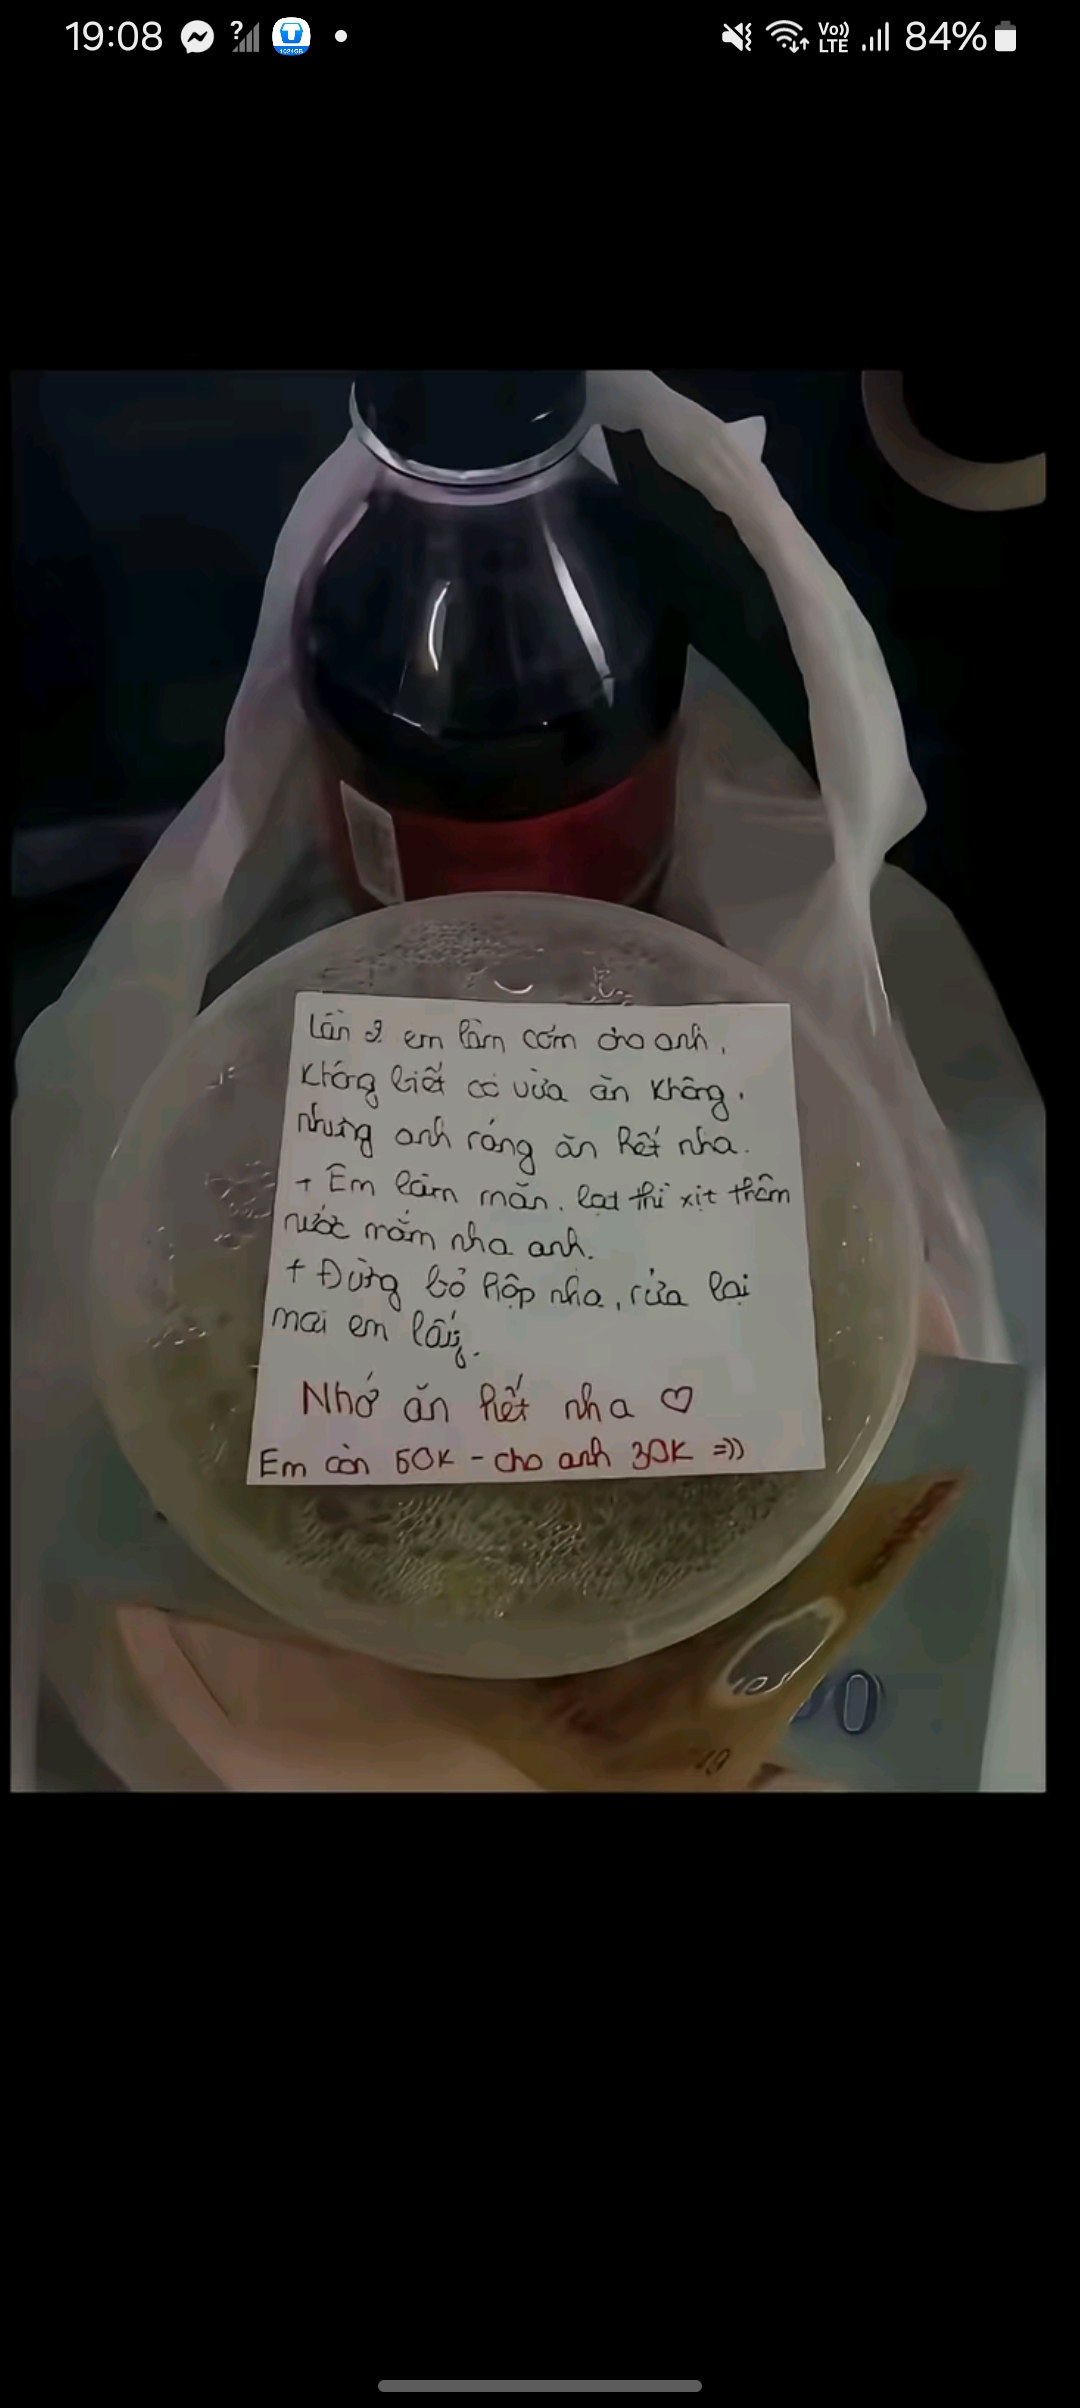 19:08
?
1024GB
Vo))
LTE
84%
Lần 2 em làm cơm cho anh,
Không biết có vừa ăn không,
nhưng anh ráng ăn hết nha.
+ Em làm mặn, lạt thì xịt thêm
nước mắm nha anh.
+ Đừng bỏ hộp nha, rửa lại
mai em lấy.
Nhớ ăn hết nha ♡
Em còn 50K - cho anh 30K =))